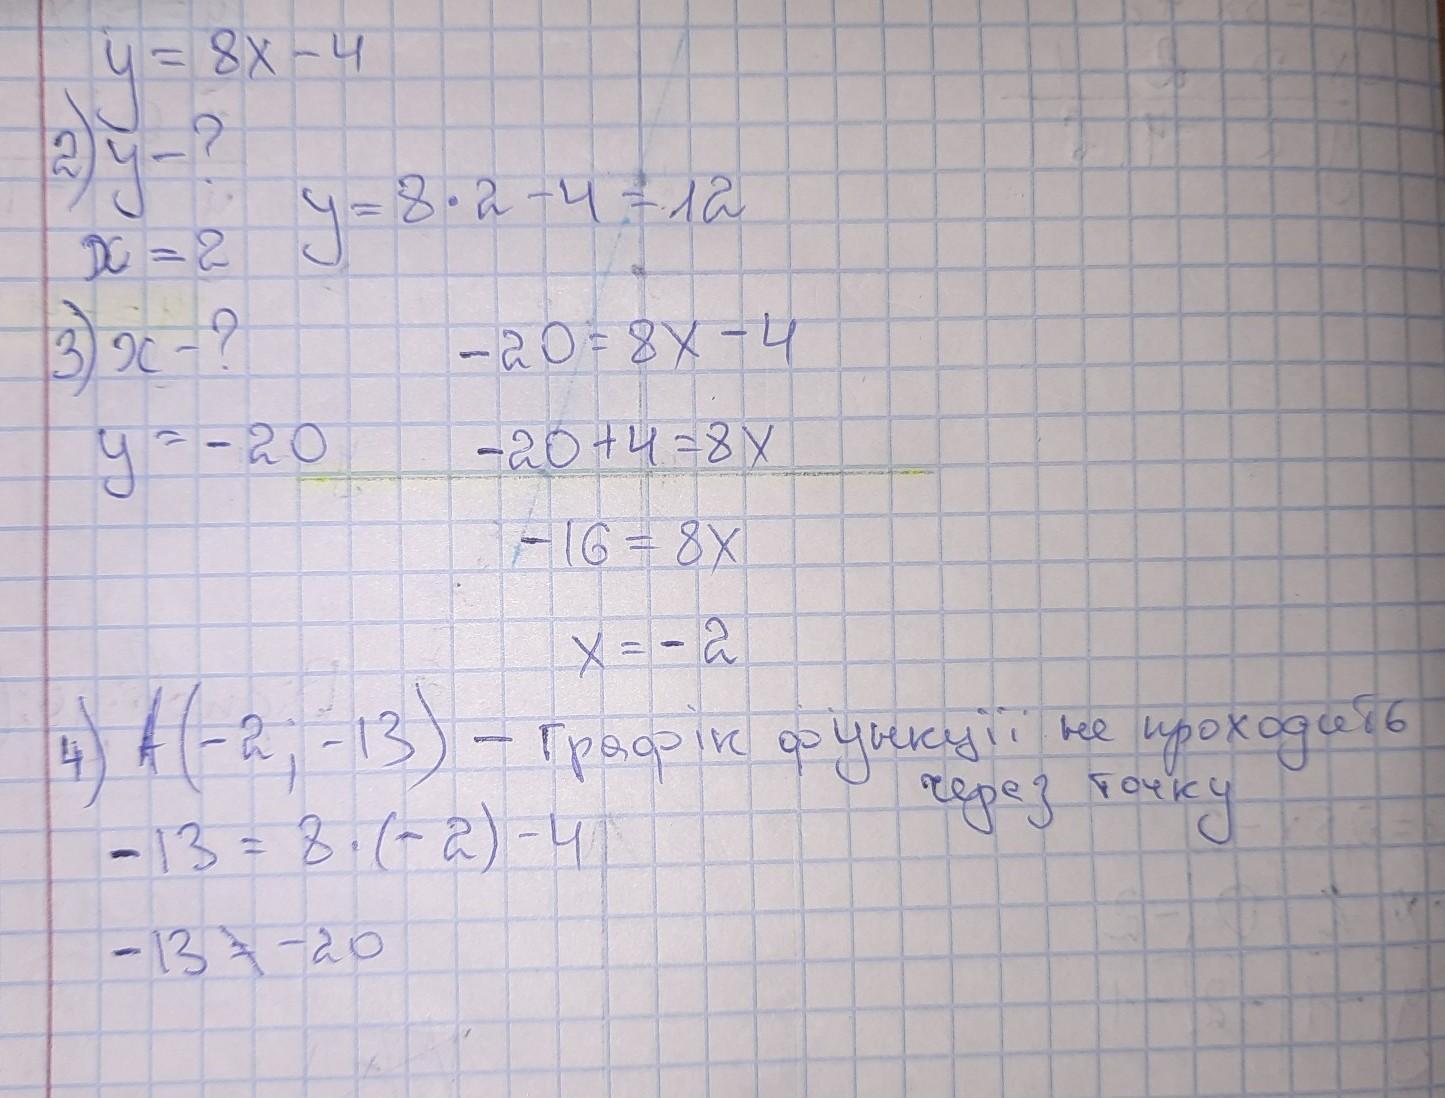 y = 8x - 4
2) y - ?
y = 8 · 2 - 4 = 12
x = 2
3) x - ?
-20 = 8x - 4
y = -20
-20 + 4 = 8x
-16 = 8x
x = -2
4) A(-2; -13) - графік функції не проходить
через точку
-13 = 8 · (-2) - 4
-13 ≠ -20